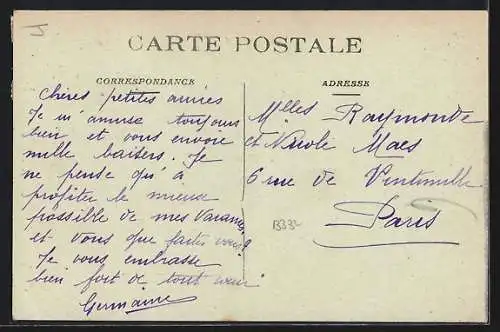 J
CARTE POSTALE
CORRESPONDANCE
ADRESSE
Chères petites amies
Je m'amuse toujours
bien et vous envoie
mille baisers. Je
ne pense qu'à
profiter le mieux
possible de mes vacances
et vous que faites vous?
Je vous embrasse
bien fort de tout cœur
Germaine
Mlles Raymonde
et Nicole Maes
6 rue de Vintimille
Paris